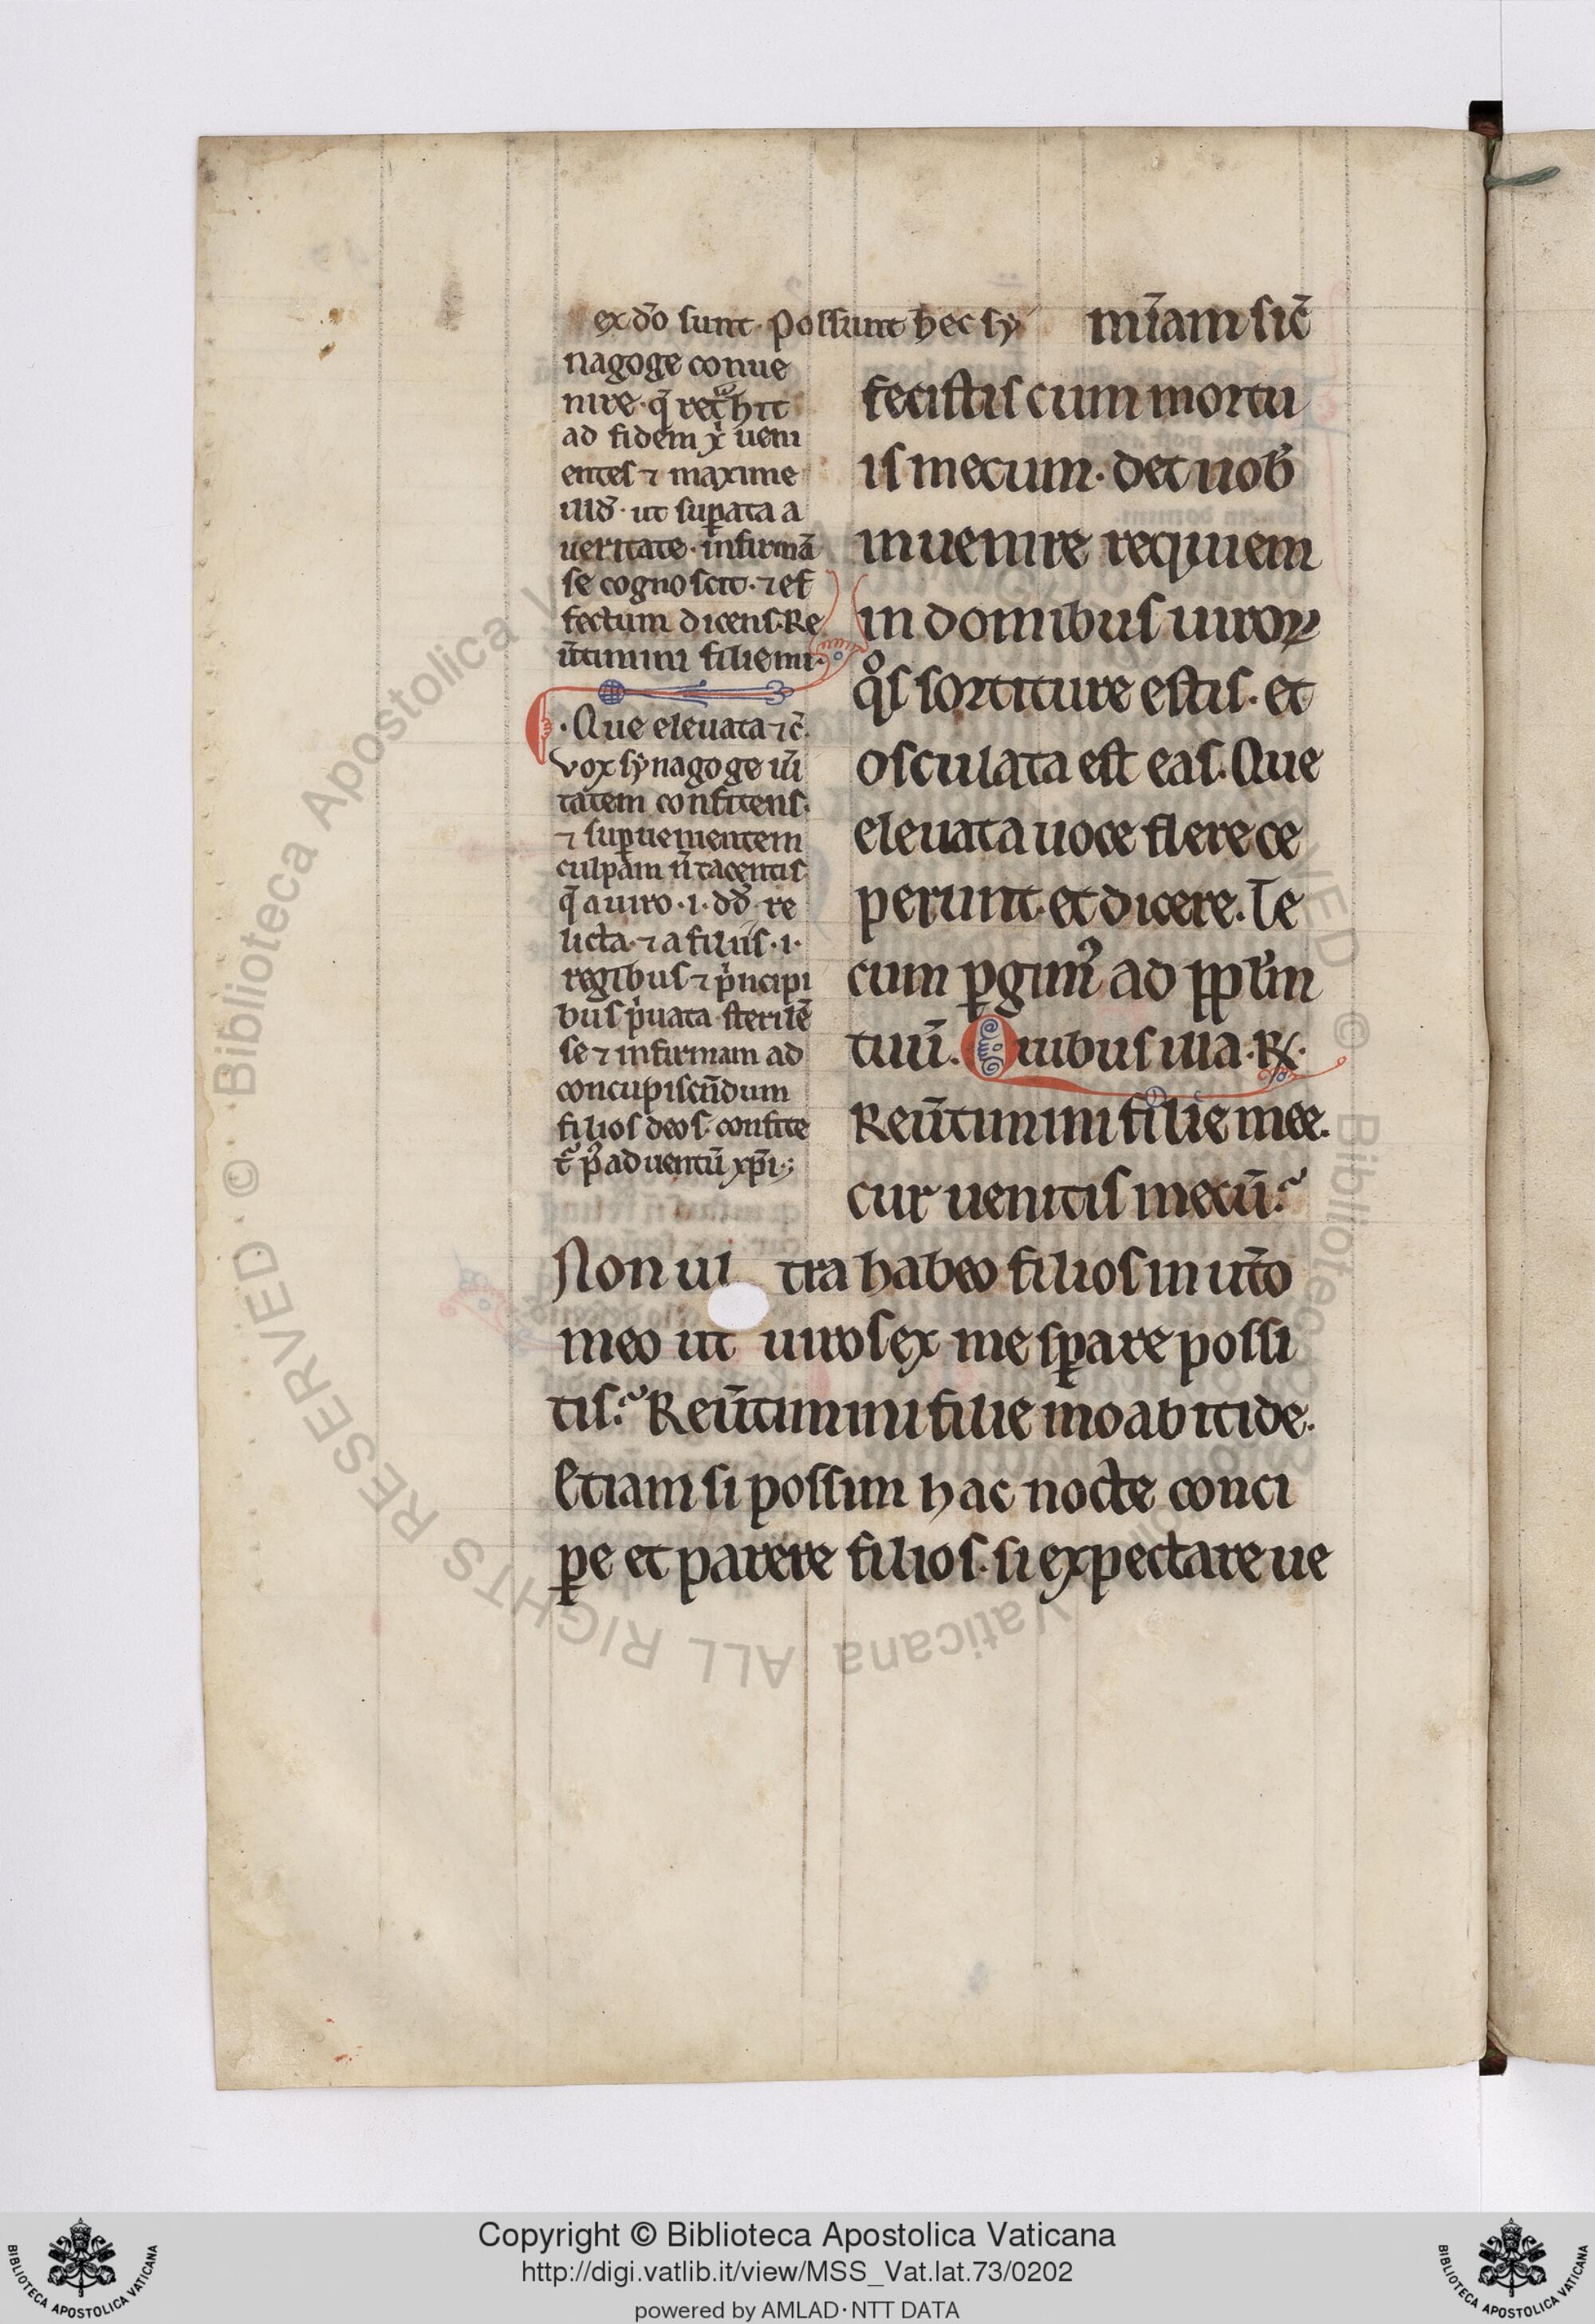 ex dō sunt. Possunt hec sy
nagoge conue
nire.
ad fidem xͥ ueni
entes ⁊ maxime
illđ. ut suꝑata a
ueritate. infirmā
se cognoscit. ⁊ ef
fectum dicens. Re
ūtimini filie mi.
.Que eleuata ⁊c̄.
vox synagoge iūi
tatem confitens.
⁊ suꝑuenientem
culpam n̄ tacentis
q̄ a uiro .i. dđ. re
licta. ⁊ a filiis .i.
regibus ⁊ pͥncipi
bus pͥuata sterilē
se ⁊ infirmam ad
concupiscn̄dum
filios deos. confite
t᷑ ꝑ aduentū xp̄i.
mīam sic̄
fecistis cum mortu
is mecum. det uob̄
inuenire requiem
in domibus uiroꝝ
qͦs sortiture estis. et
osculata est eas. Que
eleuata uoce flere ce
perunt. et dicere. Te
cum ꝑgimꝰ ad ppl̄m
tuū. Quibus illa. R̵.
Reūtimini filie mee.
cur uenitis mecū?
Non ul tra habeo filios in ut̄o
meo ut uiros ex me sꝑare possi
tis? Reūtimini filie moabitide.
Etiam si possim hac nocte conci
ꝑe et parere filios. si expectare ue
Copyright © Biblioteca Apostolica Vaticana
http://digi.vatlib.it/view/MSS_Vat.lat.73/0202
powered by AMLAD·NTT DATA
BIBLIOTECA APOSTOLICA VATICANA
BIBLIOTECA APOSTOLICA VATICANA